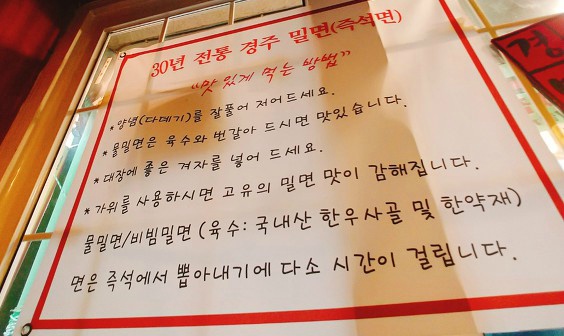 30년 전통 경주 밀면(즉석면)
"맛 있게 먹는 방법"
*양념(다데기)를 잘풀어 저어드세요.
*물밀면은 육수와 번갈아 드시면 맛있습니다.
*대장에 좋은 겨자를 넣어 드세요.
*가위를 사용하시면 고유의 밀면 맛이 감해집니다.
물밀면/비빔밀면 (육수: 국내산 한우사골 및 한약재)
면은 즉석에서 뽑아내기에 다소 시간이 걸립니다.